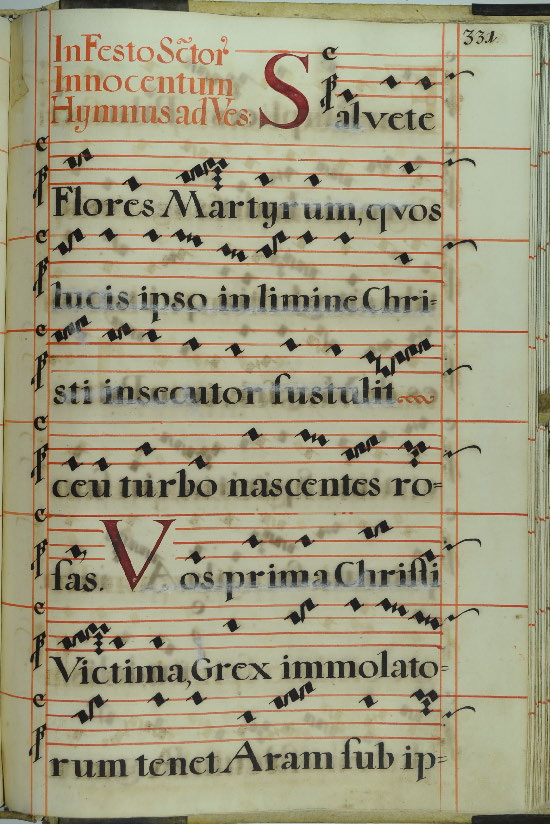 331
In Festo Sc̃tor̃
Innocentum
Hymnus ad Ves.
Salvete
Flores Martyrum, qvos
lucis ipso in limine Chri-
sti insecutor sustulit
ceu turbo nascentes ro-
sas. Vos prima Christi
Victima, Grex immolato-
rum tener Aram sub ip-